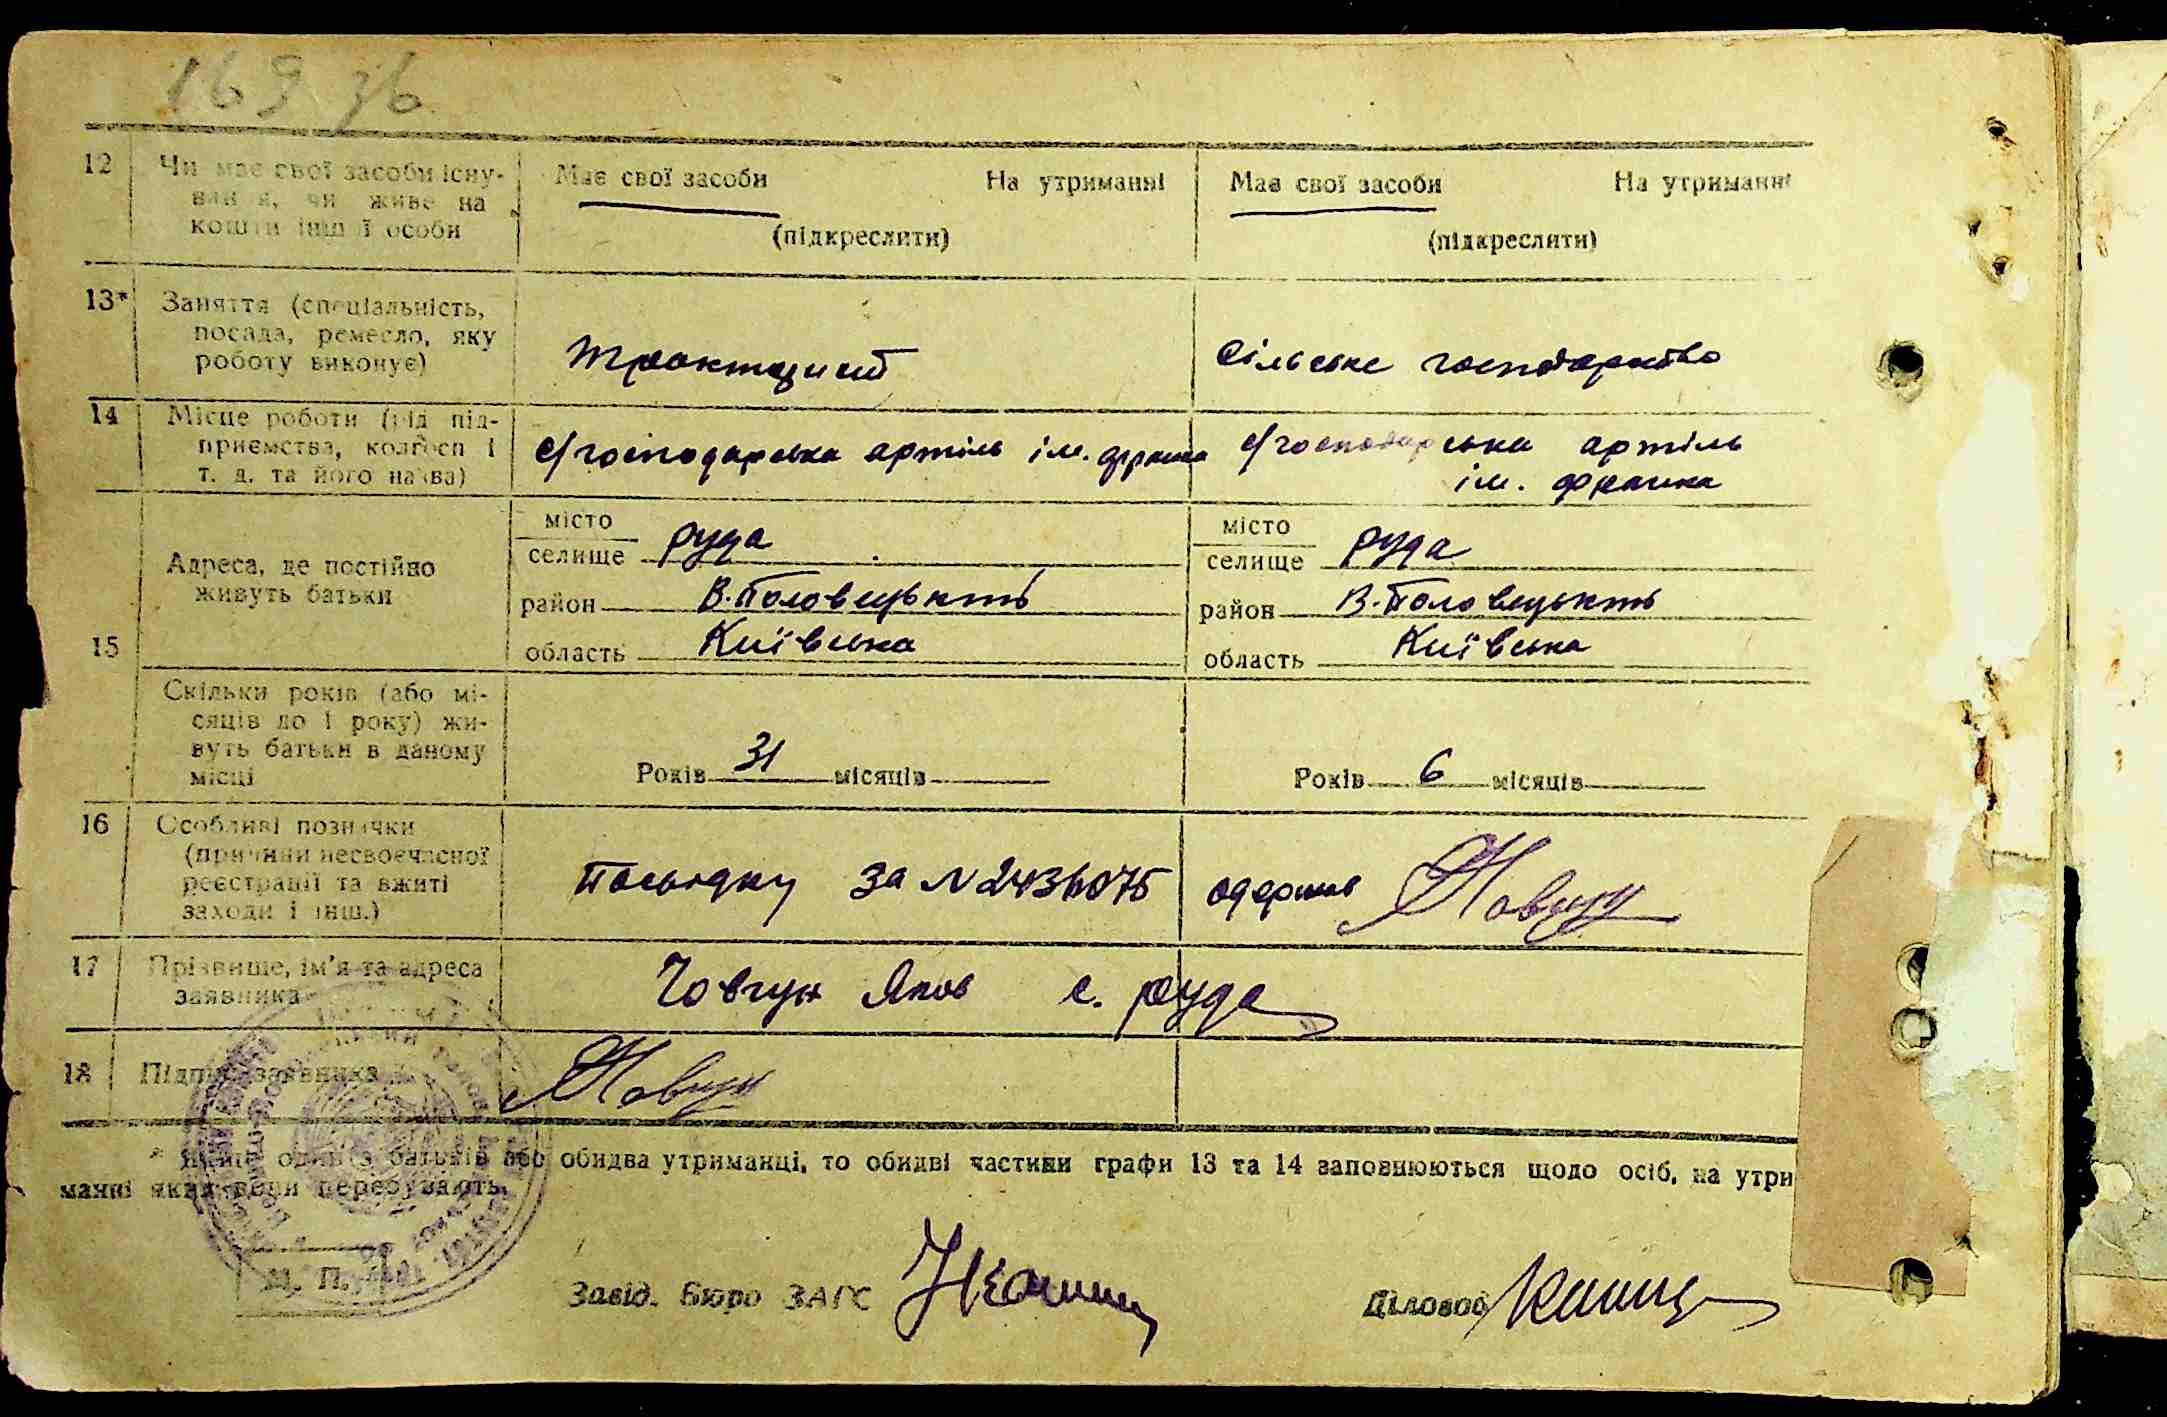 169 зв
12 Чи має свої засоби існу-
вання, чи живе на
кошти іншої особи
Має свої засоби На утриманні
(підкреслити)
Має свої засоби На утриманні
(підкреслити)
13* Заняття (спеціальність,
посада, ремесло, яку
роботу виконує)
тракторист
Сільське господарство
14 Місце роботи (рід під-
приємства, колгосп і
т. д. та його назва)
с/господарська артіль ім. франка
с/господарська артіль
ім. франка
15 Адреса, де постійно
живуть батьки
місто
селище Руда
район В.Половецький
область Київська
місто
селище Руда
район В.Половецький
область Київська
Скільки років (або мі-
сяців до 1 року) жи-
вуть батьки в даному
місці
Років 31 місяців
Років 6 місяців
16 Особливі позначки
(причини несвоєчасної
реєстрації та вжиті
заходи і інш.)
за N 2436075 одержав
17 Прізвище, ім'я та адреса
заявника
Човгун Яков с. Руда
18 Підпис заявника
* Якщо один з батьків або обидва утриманці, то обидві частини графи 13 та 14 заповнюються щодо осіб, на утри
манні яких вони перебувають.
М. П.
Завід. Бюро ЗАГС
Діловод